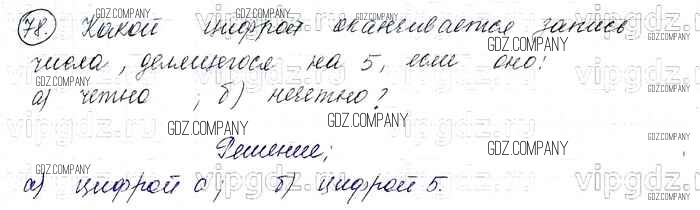 78. Какой цифрой оканчивается запись
числа, делящегося на 5, если оно:
а) четно ; б) нечетно?
Решение;
а) цифрой 0; б) цифрой 5.
GDZ.COMPANY
vipgdz.com